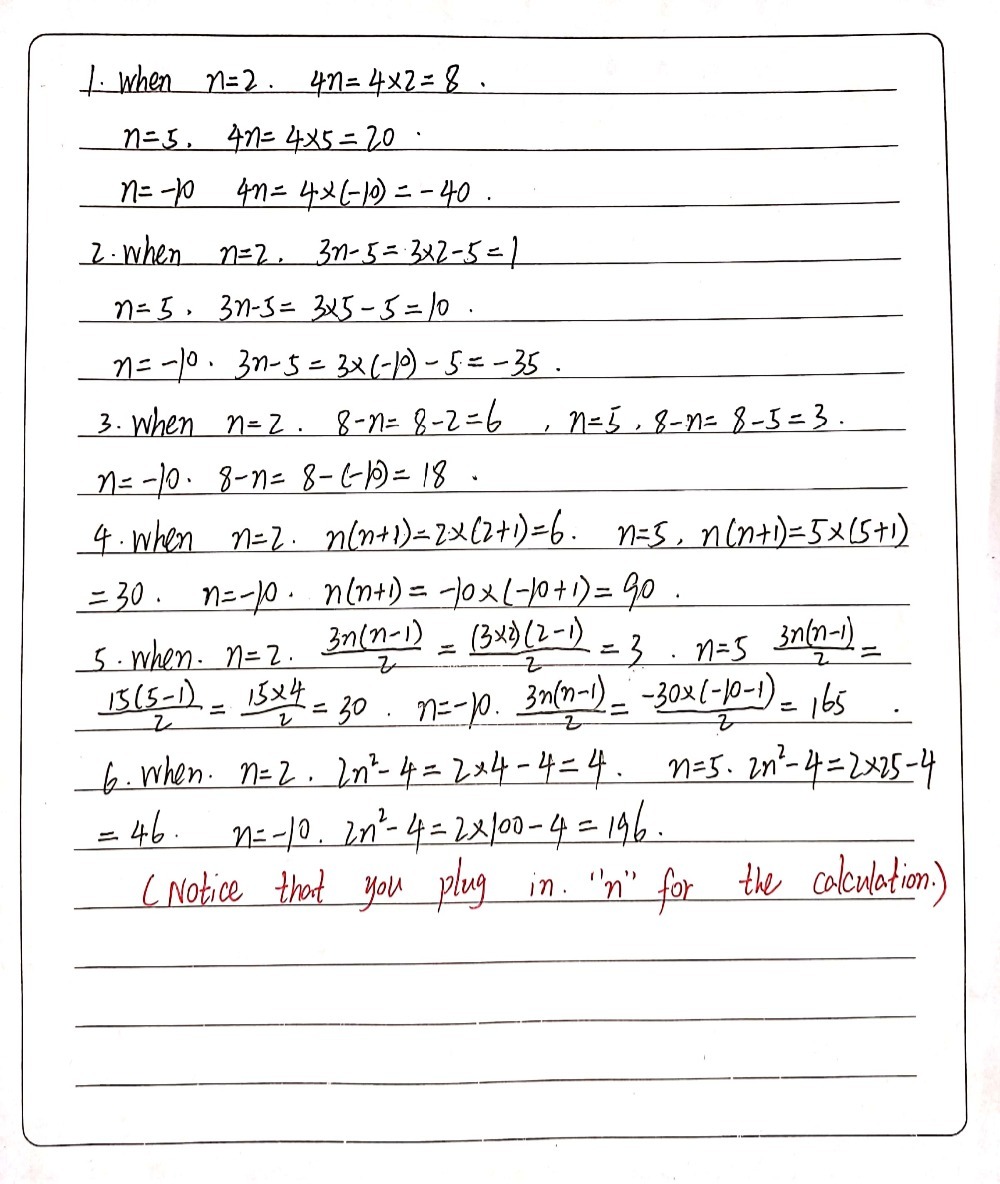 1. when n=2. 4n=4×2=8.
n=5. 4n=4×5=20.
n=-10 4n=4×(-10)=-40.
2. when n=2. 3n-5=3×2-5=1
n=5. 3n-5=3×5-5=10.
n=-10. 3n-5=3×(-10)-5=-35.
3. when n=2. 8-n=8-2=6, n=5, 8-n=8-5=3.
n=-10. 8-n=8-(-10)=18.
4. when n=2. n(n+1)=2×(2+1)=6. n=5, n(n+1)=5×(5+1)
=30. n=-10. n(n+1)=-10×(-10+1)=90.
5. when. n=2. 3n(n-1)/2 = (3×2)(2-1)/2 = 3. n=5 3n(n-1)/2 =
15(5-1)/2 = 15×4/2 = 30. n=-10. 3n(n-1)/2 = -30×(-10-1)/2 = 165.
6. when. n=2. 2n²-4=2×4-4=4. n=5. 2n²-4=2×25-4
=46. n=-10. 2n²-4=2×100-4=196.
(Notice that you plug in. "n" for the calculation.)